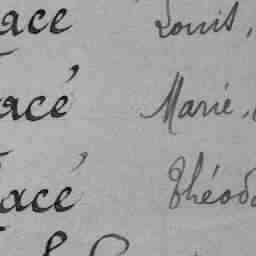 ace Louis,
acé Marie,
acé Théodo